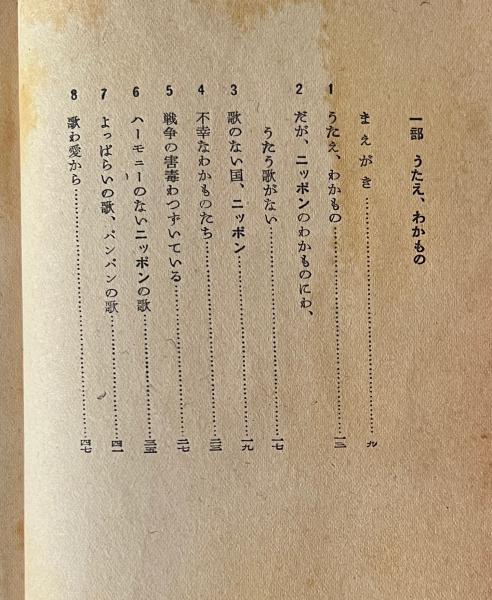 一部 うたえ、わかもの
まえがき……………………九
1 うたえ、わかもの……………………一二
2 だが、ニッポンのわかものにわ、
うたう歌がない……………………一七
3 歌のない国、ニッポン……………………一九
4 不幸なわかものたち……………………二三
5 戦争の害毒わつずいている……………………二七
6 ハーモニーのないニッポンの歌……………………三五
7 よっぱらいの歌、パンパンの歌……………………四一
8 歌わ愛から……………………四七